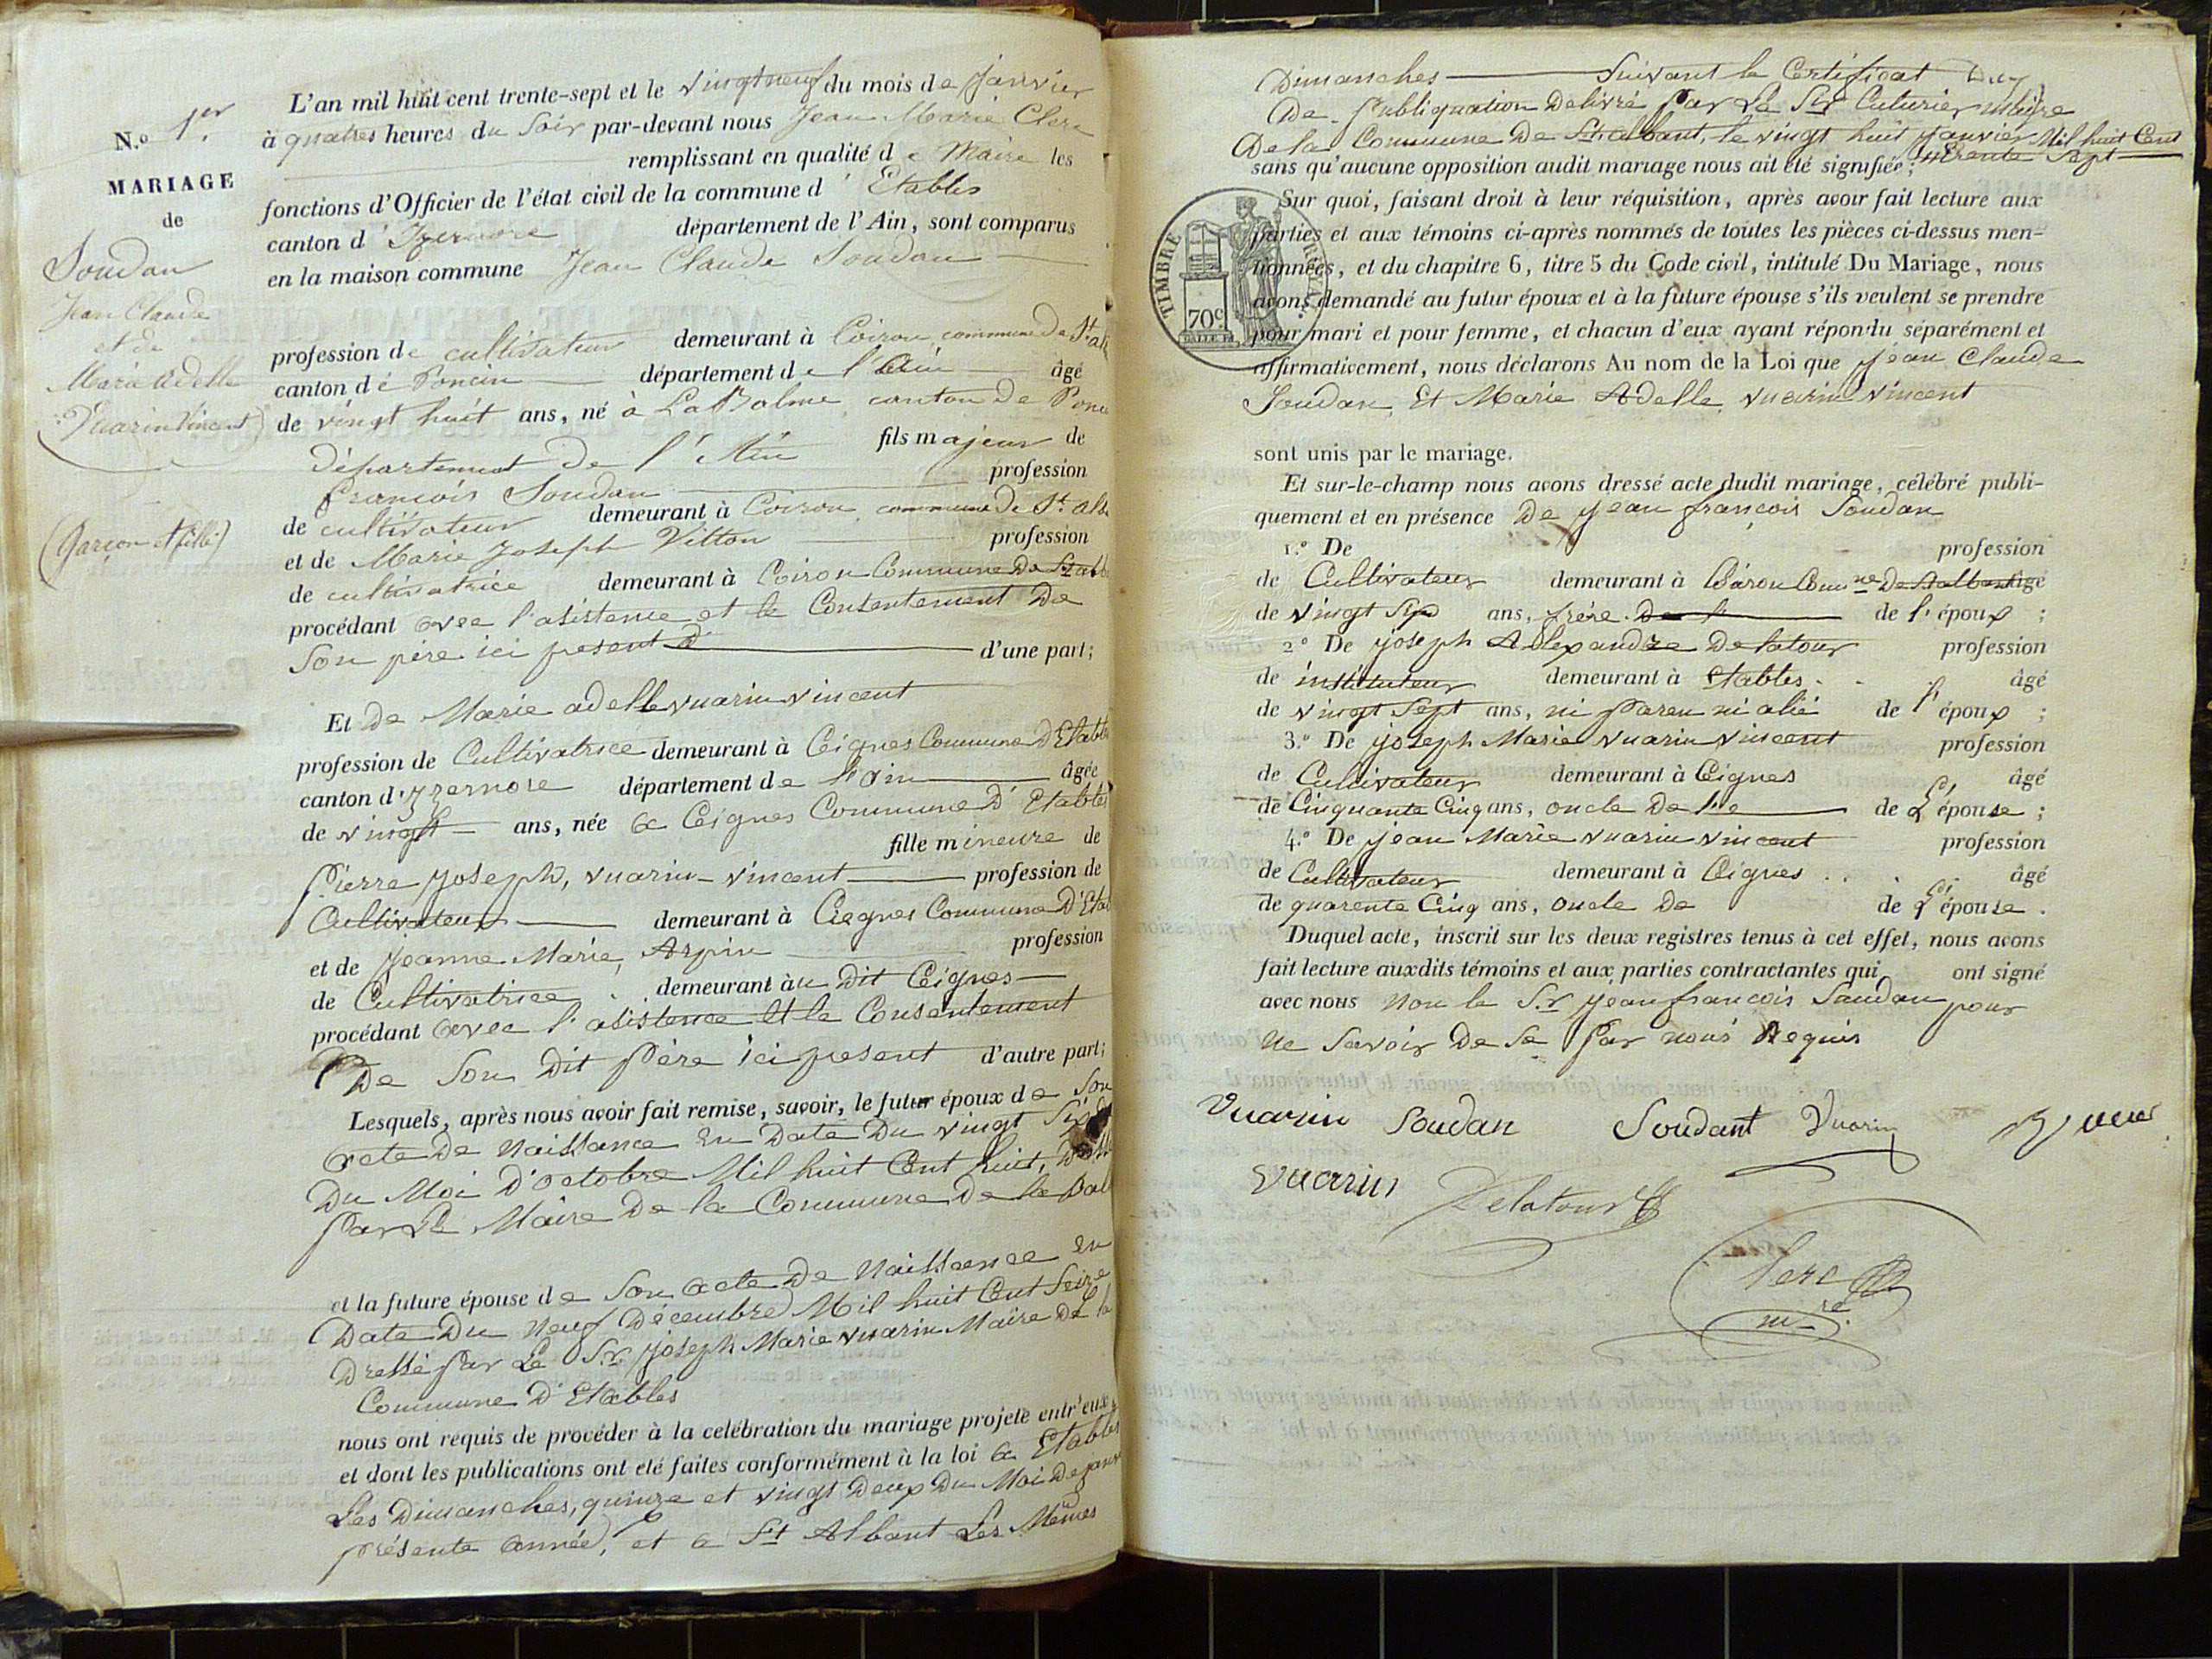 N.o 1er
MARIAGE
de
Soudan
Jean Claude
et de
Marie Adelle
Vuarin Vincent
(Garçon et fille)
L'an mil huit cent trente-sept et le vingt neuf du mois de janvier
à quatres heures du soir par-devant nous Jean Marie Clerc
remplissant en qualité de Maire les
fonctions d'Officier de l'état civil de la commune d'Etables
canton d'Izernore département de l'Ain, sont comparus
en la maison commune Jean Claude Soudan
profession de cultivateur demeurant à Coiron commune de St. alb
canton de Poncin département de l'Ain âgé
de vingt huit ans, né à La Balme canton de Ponc
département de l'Ain fils majeur de
françois Soudan profession
de cultivateur demeurant à Coiron commune de St. alb
et de Marie Joseph Vitton profession
de cultivatrice demeurant à Coiron Commune de St alb
procédant avec l'asistence et le Consentement De
Son père ici présent d'une part;
Et De Marie adelle vuarin vincent
profession de Cultivatrice demeurant à Ceignes Commune D'Etables
canton d'izernore département de l'ain âgée
de vingt ans, née a Ceignes Commune D'Etables
fille mineure de
Pierre Joseph, vuarin-vincent profession de
Cultivateur demeurant à Ciegnes Commune D'Etab
et de Jeanne Marie, Arpin profession
de Cultivatrice demeurant àu Dit Ceignes
procédant avec l'asistence Et le Consentement
De Son Dit Père ici present d'autre part;
Lesquels, après nous avoir fait remise, savoir, le futur époux de Son
acte De Naissance En Date Du vingt Six
Du Moi D'octobre Mil huit Cent huit,
Par Le Maire De la Commune De la Bal
et la future épouse de Son acte De Naissance En
Date Du Neuf Décembre Mil huit Cent Seize
Dressé Par Le Sr. joseph Marie vuarin Maire De la
Commune D'Etables
nous ont requis de procéder à la celébration du mariage projeté entr'eux
et dont les publications ont été faites conformément à la loi a Etables
Les Dimanches, quinze et vingt Deux Du Moi De janv
présente année, et a St Albant Les Mêmes
Dimanches Suivant le Certificat
De Publiquation Delivré Par Le Sr Cuturier Maire
De la Commune De St albant, le vingt huit janvier Mil huit Cent
trente Sept
sans qu'aucune opposition audit mariage nous ait été signifiée;
Sur quoi, faisant droit à leur réquisition, après avoir fait lecture aux
parties et aux témoins ci-après nommés de toutes les pièces ci-dessus men-
tionnées, et du chapitre 6, titre 5 du Code civil, intitulé Du Mariage, nous
avons demandé au futur époux et à la future épouse s'ils veulent se prendre
pour mari et pour femme, et chacun d'eux ayant répondu séparément et
affirmativement, nous déclarons Au nom de la Loi que jean Claude
Soudan, Et Marie Adelle, vuarin vincent
TIMBRE ROYAL
70c
sont unis par le mariage.
Et sur-le-champ nous avons dressé acte dudit mariage, célébré publi-
quement et en présence De jean françois Soudan
1.o De profession
de Cultivateur demeurant à Coiron Comne De St albant âgé
de vingt Six ans, frère de l'époux ;
2o De joseph Allexandre Delatour profession
de instituteur demeurant à Etables âgé
de vingt Sept ans, ni Paren ni alié de l'époux ;
3.o De joseph Marie vuarin vincent profession
de Cultivateur demeurant à Ceignes âgé
de Cinquante Cinq ans, oncle De de L'épouse ;
4.o De jean Marie vuarin vincent profession
de Cultivateur demeurant à Ceignes âgé
de quarente Cinq ans, oncle De de L'épouse .
Duquel acte, inscrit sur les deux registres tenus à cet effet, nous avons
fait lecture auxdits témoins et aux parties contractantes qui ont signé
avec nous Non le Sr jean françois Saudan pour
Ne Savoir De Se Par nous Requis
Vuarin Soudan Soudant Vuarin
vuarin Delatour
Clerc
mre